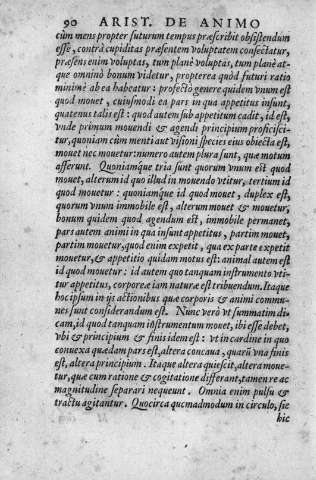 90 ARIST. DE ANIMO
cùm mens propter futurum tempus præscribit obsistendum
esse, contrà cupiditas præsentem voluptatem consectatur,
præsens enim voluptas, tum planè voluptas, tum planè at-
que omninò bonum videtur, propterea quòd futuri ratio
minimè ab ea habeatur: profectò genere quidem vnum est
quod mouet, cuiusmodi ea pars in qua appetitus insunt,
quatenus talis est: quod autem sub appetitum cadit, id est,
vnde primum mouendi & agendi principium proficisci-
tur, quoniam cùm menti aut visioni species eius obiecta est,
mouet nec mouetur: numero autem plura sunt, quæ motum
afferunt. Quoniamque tria sunt quorum vnum est quod
mouet, alterum id quo illud in mouendo vtitur, tertium id
quod mouetur: quoniamque id quod mouet, duplex est,
quorum vnum immobile est, alterum mouet & mouetur,
bonum quidem quod agendum est, immobile permanet,
pars autem animi in qua insunt appetitus, partim mouet,
partim mouetur, quod enim expetit, qua ex parte expetit
mouetur, & appetitio quidam motus est: animal autem est
id quod mouetur: id autem quo tanquam instrumento vti-
tur appetitus, corporeæ iam naturæ est tribuendum. Itaque
hoc ipsum in ijs actionibus quæ corporis & animi commu-
nes sunt considerandum est. Nunc verò vt summatim di-
cam, id quod tanquam instrumentum mouet, ibi esse debet,
vbi & principium & finis idem est: vt in cardine in quo
conuexa quædam pars est, altera concaua, quarũ vna finis
est, altera principium. Itaque altera quiescit, altera moue-
tur, quæ cum ratione & cogitatione differant, tamen re ac
magnitudine separari nequeunt. Omnia enim pulsu &
tractu agitantur. Quocirca quemadmodum in circulo, sic
hic